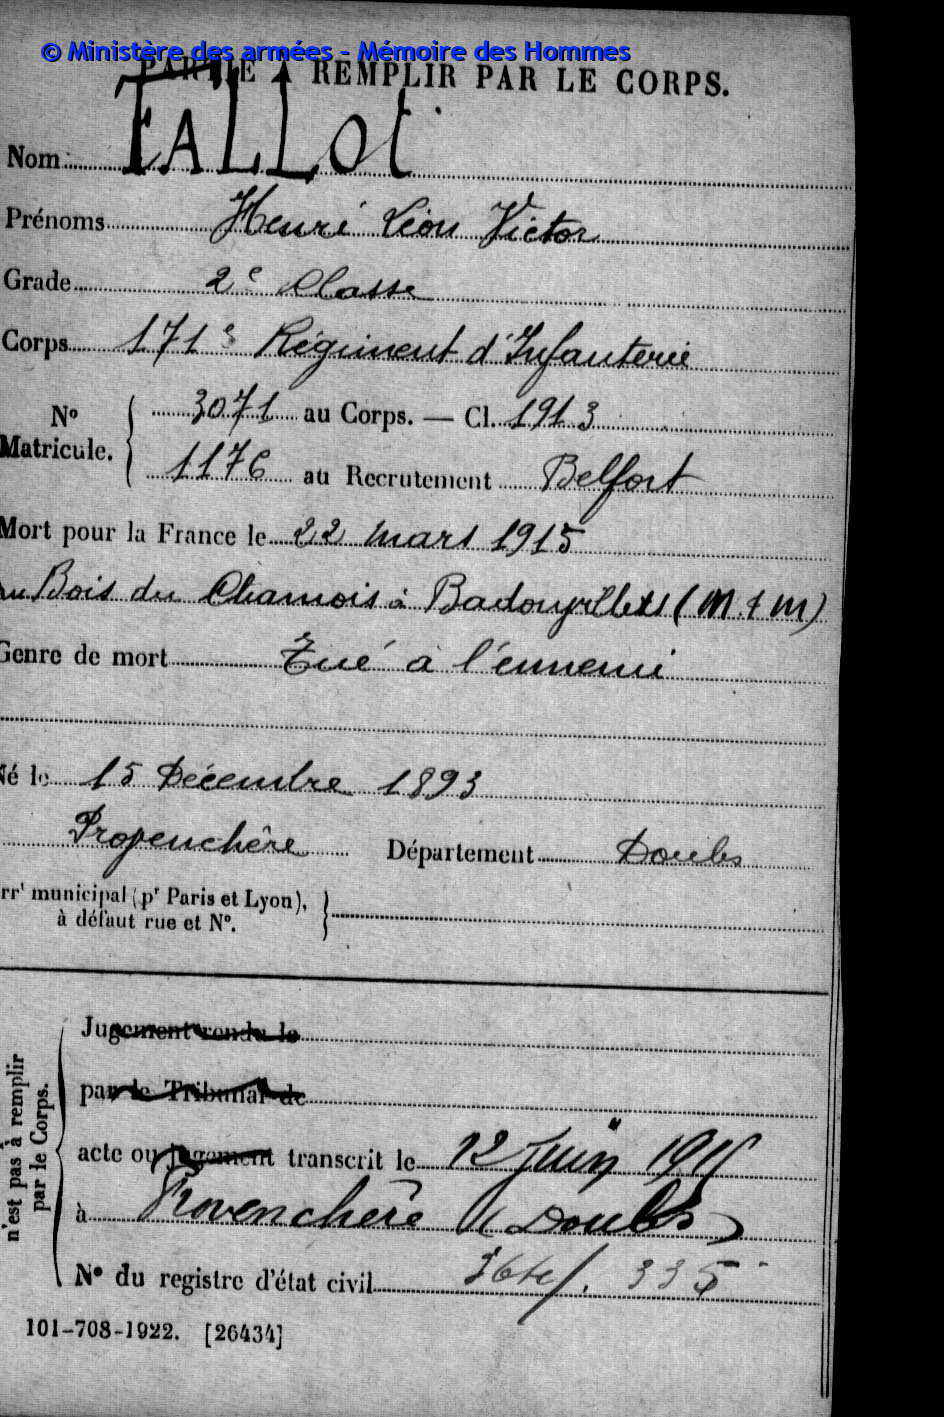 © Ministère des armées - Mémoire des Hommes
PARTIE À REMPLIR PAR LE CORPS.
Nom: FALLOt
Prénoms Henri Léon Victor
Grade 2e Classe
Corps 171e Régiment d'Infanterie
No 3071 au Corps. — Cl. 1913
Matricule. 1176 au Recrutement Belfort
Mort pour la France le 22 mars 1915
au Bois du Chamois à (M & M)
Genre de mort Tué à l'ennemi
Né le 15 Décembre 1893
Provenchère Département Doubs
rrt municipal (pr Paris et Lyon),
à défaut rue et No.
Jugement rendu le
par le Tribunal de
acte ou jugement transcrit le 12 Juin 1915
à Provenchère (Doubs)
No du registre d'état civil 335
n'est pas à remplir
par le Corps.
101-708-1922. [26434]